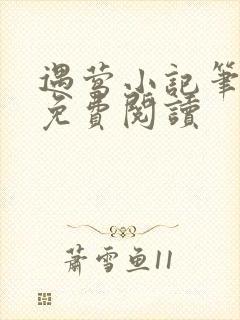 遇萤小記筆
免費閱讀
蕭雪魚11